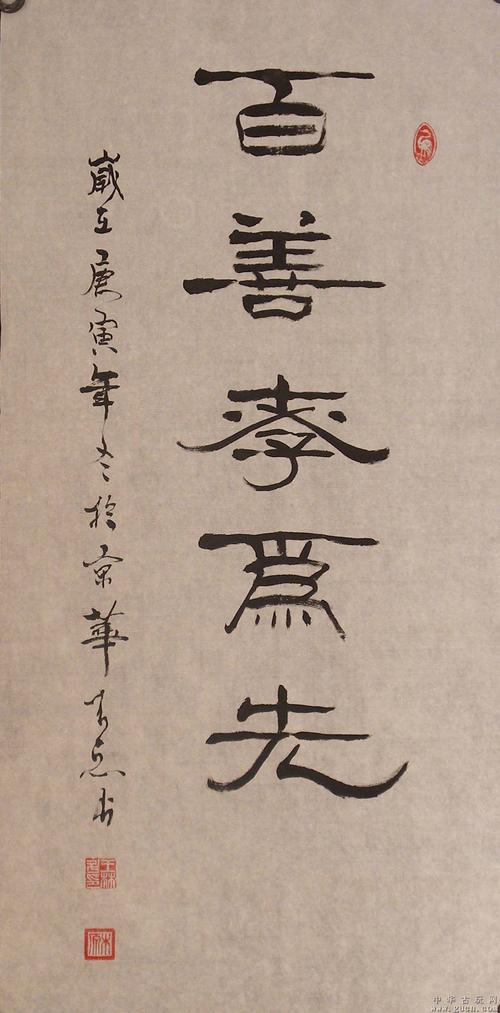 百善孝爲先
歲在庚寅年冬於京華
中华古玩网
www.gucn.com